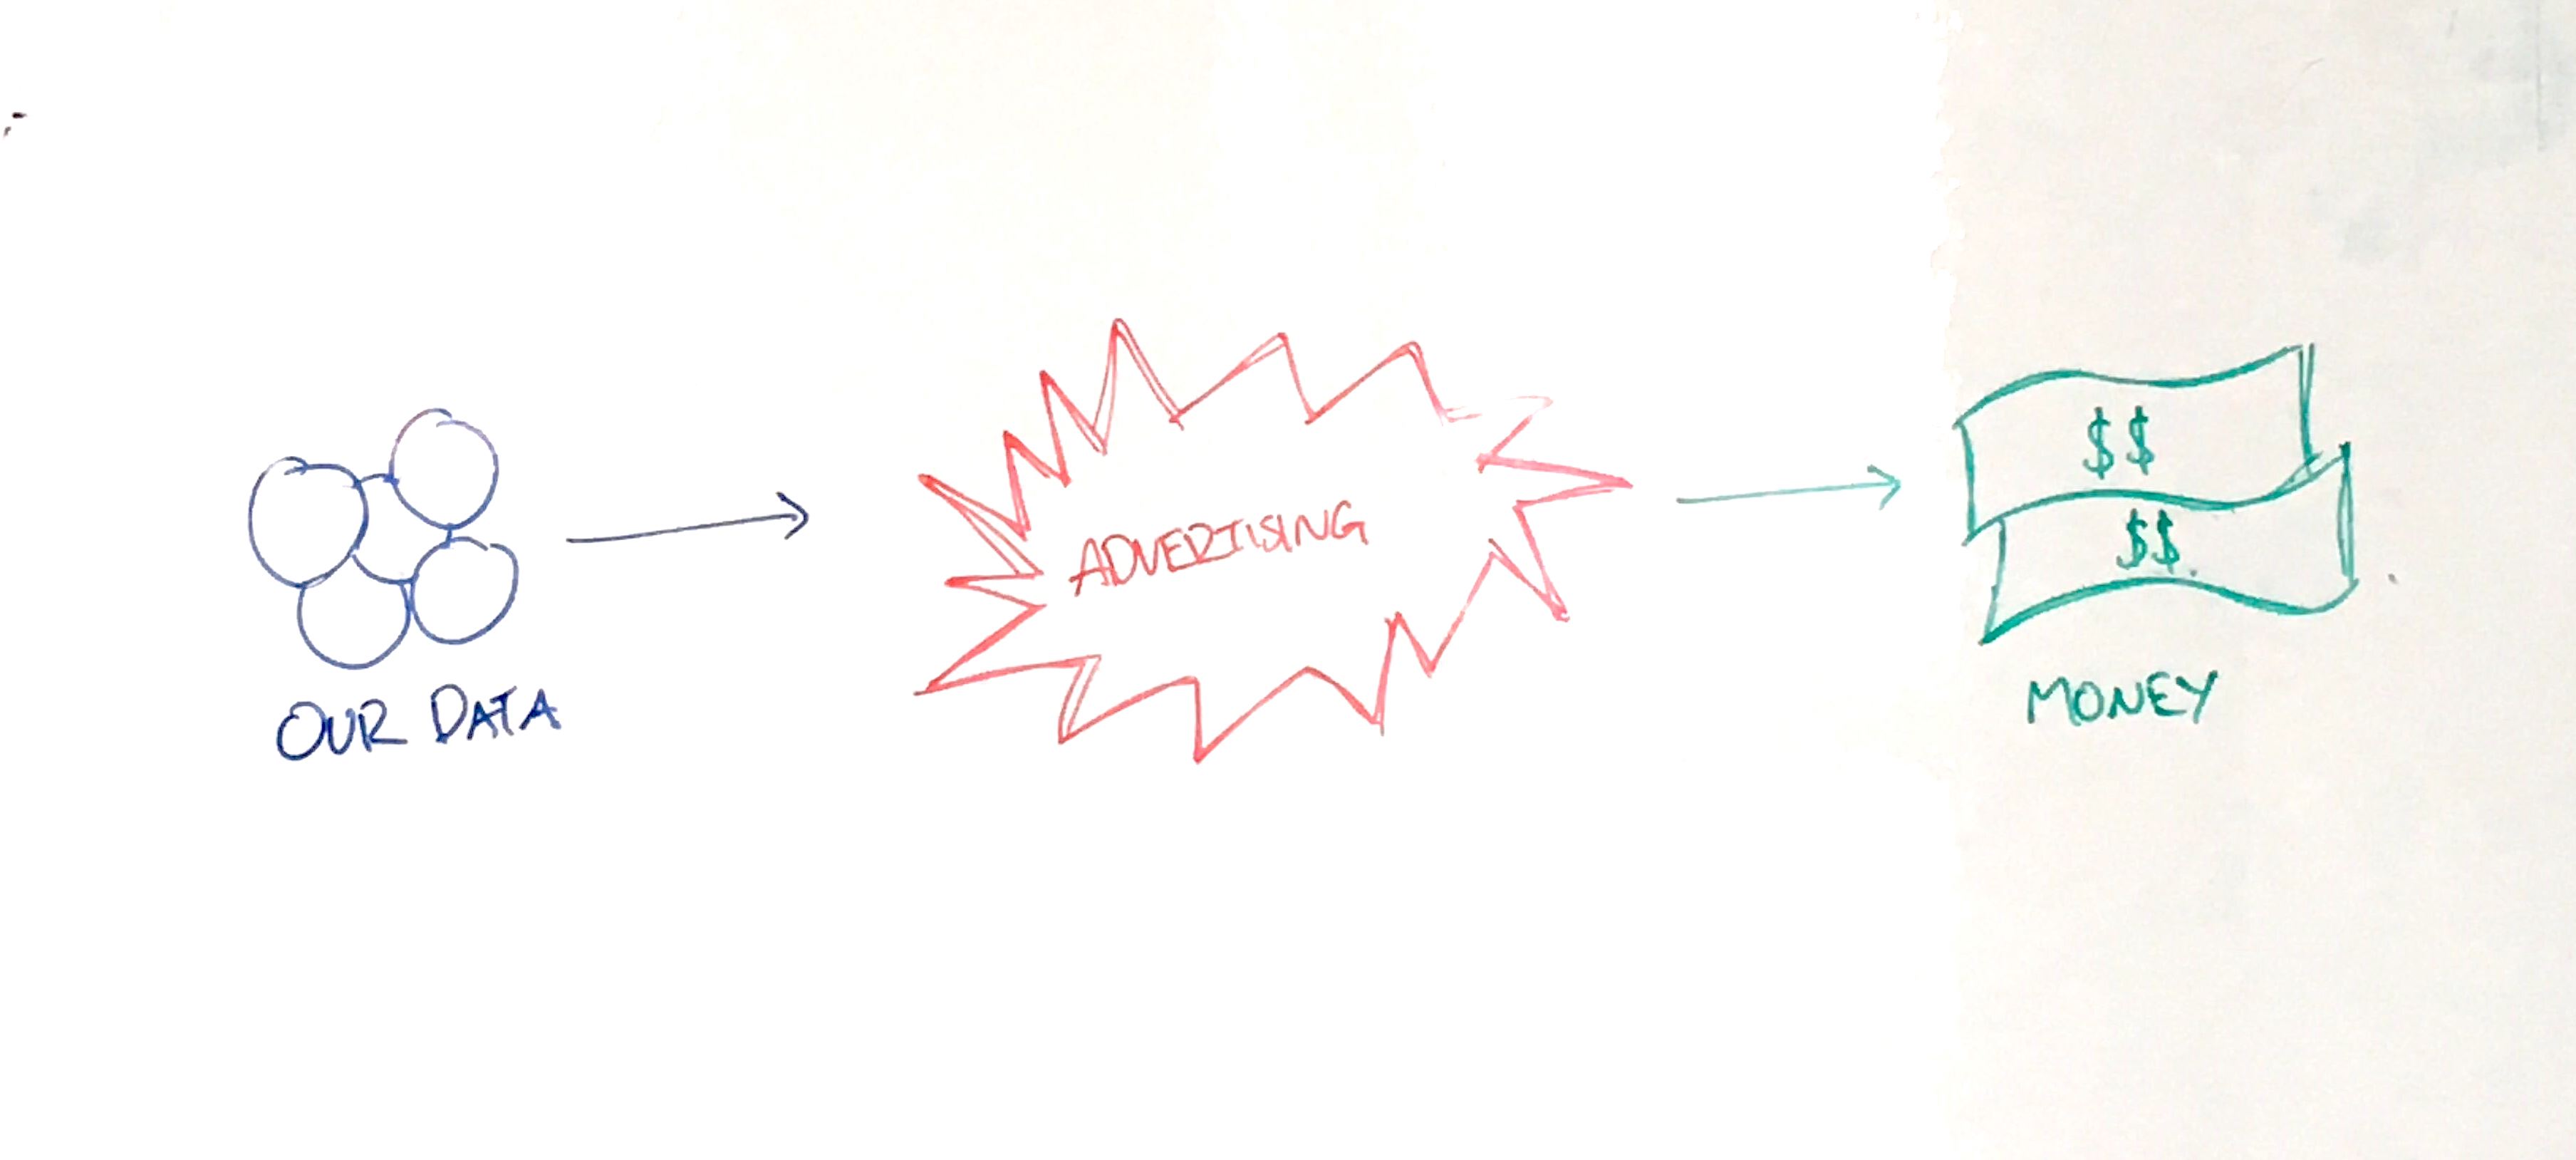 OUR DATA
ADVERTISING
$$
$$.
MONEY